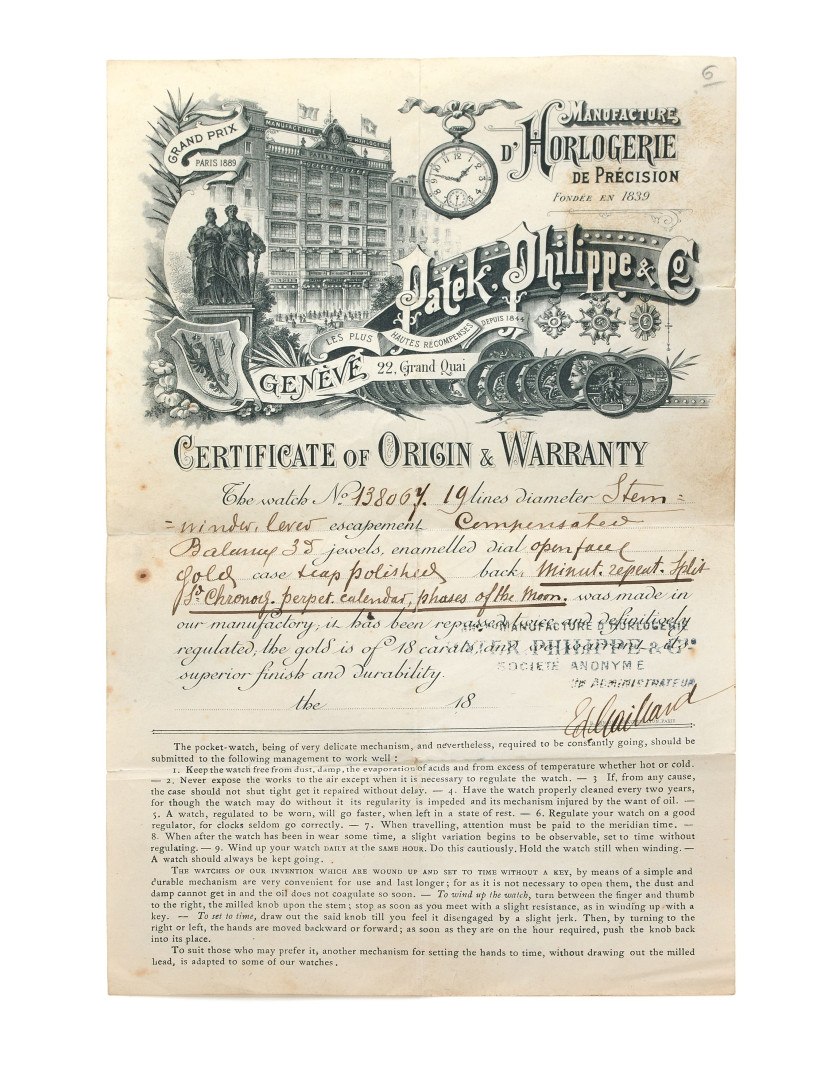 6
GRAND PRIX
PARIS 1889
MANUFACTURE D'HORLOGERIE
PATEK PHILIPPE & Co
MANUFACTURE
D'HORLOGERIE
DE PRÉCISION
FONDÉE EN 1839
Patek, Philippe & Co
LES PLUS HAUTES RÉCOMPENSES DEPUIS 1844
GENÈVE 22, Grand Quai
CERTIFICATE OF ORIGIN & WARRANTY
The watch No 138067. 19 lines diameter Stem=
=winder, lever escapement Compensated
Balance 35 jewels, enamelled dial open face
gold case polished back, Minut. repeat. Split
Sd Chronog. perpet. calendar, phases of the Moon. was made in
our manufactory; it has been repassed and definitively
regulated; the gold is of 18 carats, and we warrant its
superior finish and durability.
the 18
MANUFACTURE D'HORLOGERIE
PATEK PHILIPPE & Cie
SOCIÉTÉ ANONYME
UN ADMINISTRATEUR
Ed Gaillard
PARIS
The pocket-watch, being of very delicate mechanism, and nevertheless, required to be constantly going, should be
submitted to the following management to work well :
1. Keep the watch free from dust, damp, the evaporation of acids and from excess of temperature whether hot or cold.
— 2. Never expose the works to the air except when it is necessary to regulate the watch. — 3 If, from any cause,
the case should not shut tight get it repaired without delay. — 4. Have the watch properly cleaned every two years,
for though the watch may do without it its regularity is impeded and its mechanism injured by the want of oil. —
5. A watch, regulated to be worn, will go faster, when left in a state of rest. — 6. Regulate your watch on a good
regulator, for clocks seldom go correctly. — 7. When travelling, attention must be paid to the meridian time. —
8. When after the watch has been in wear some time, a slight variation begins to be observable, set to time without
regulating. — 9. Wind up your watch DAILY at the SAME HOUR. Do this cautiously. Hold the watch still when winding. —
A watch should always be kept going.
THE WATCHES OF OUR INVENTION WHICH ARE WOUND UP AND SET TO TIME WITHOUT A KEY, by means of a simple and
durable mechanism are very convenient for use and last longer; for as it is not necessary to open them, the dust and
damp cannot get in and the oil does not coagulate so soon. — To wind up the watch, turn between the finger and thumb
to the right, the milled knob upon the stem ; stop as soon as you meet with a slight resistance, as in winding up with a
key. — To set to time, draw out the said knob till you feel it disengaged by a slight jerk. Then, by turning to the
right or left, the hands are moved backward or forward; as soon as they are on the hour required, push the knob back
into its place.
To suit those who may prefer it, another mechanism for setting the hands to time, without drawing out the milled
head, is adapted to some of our watches.